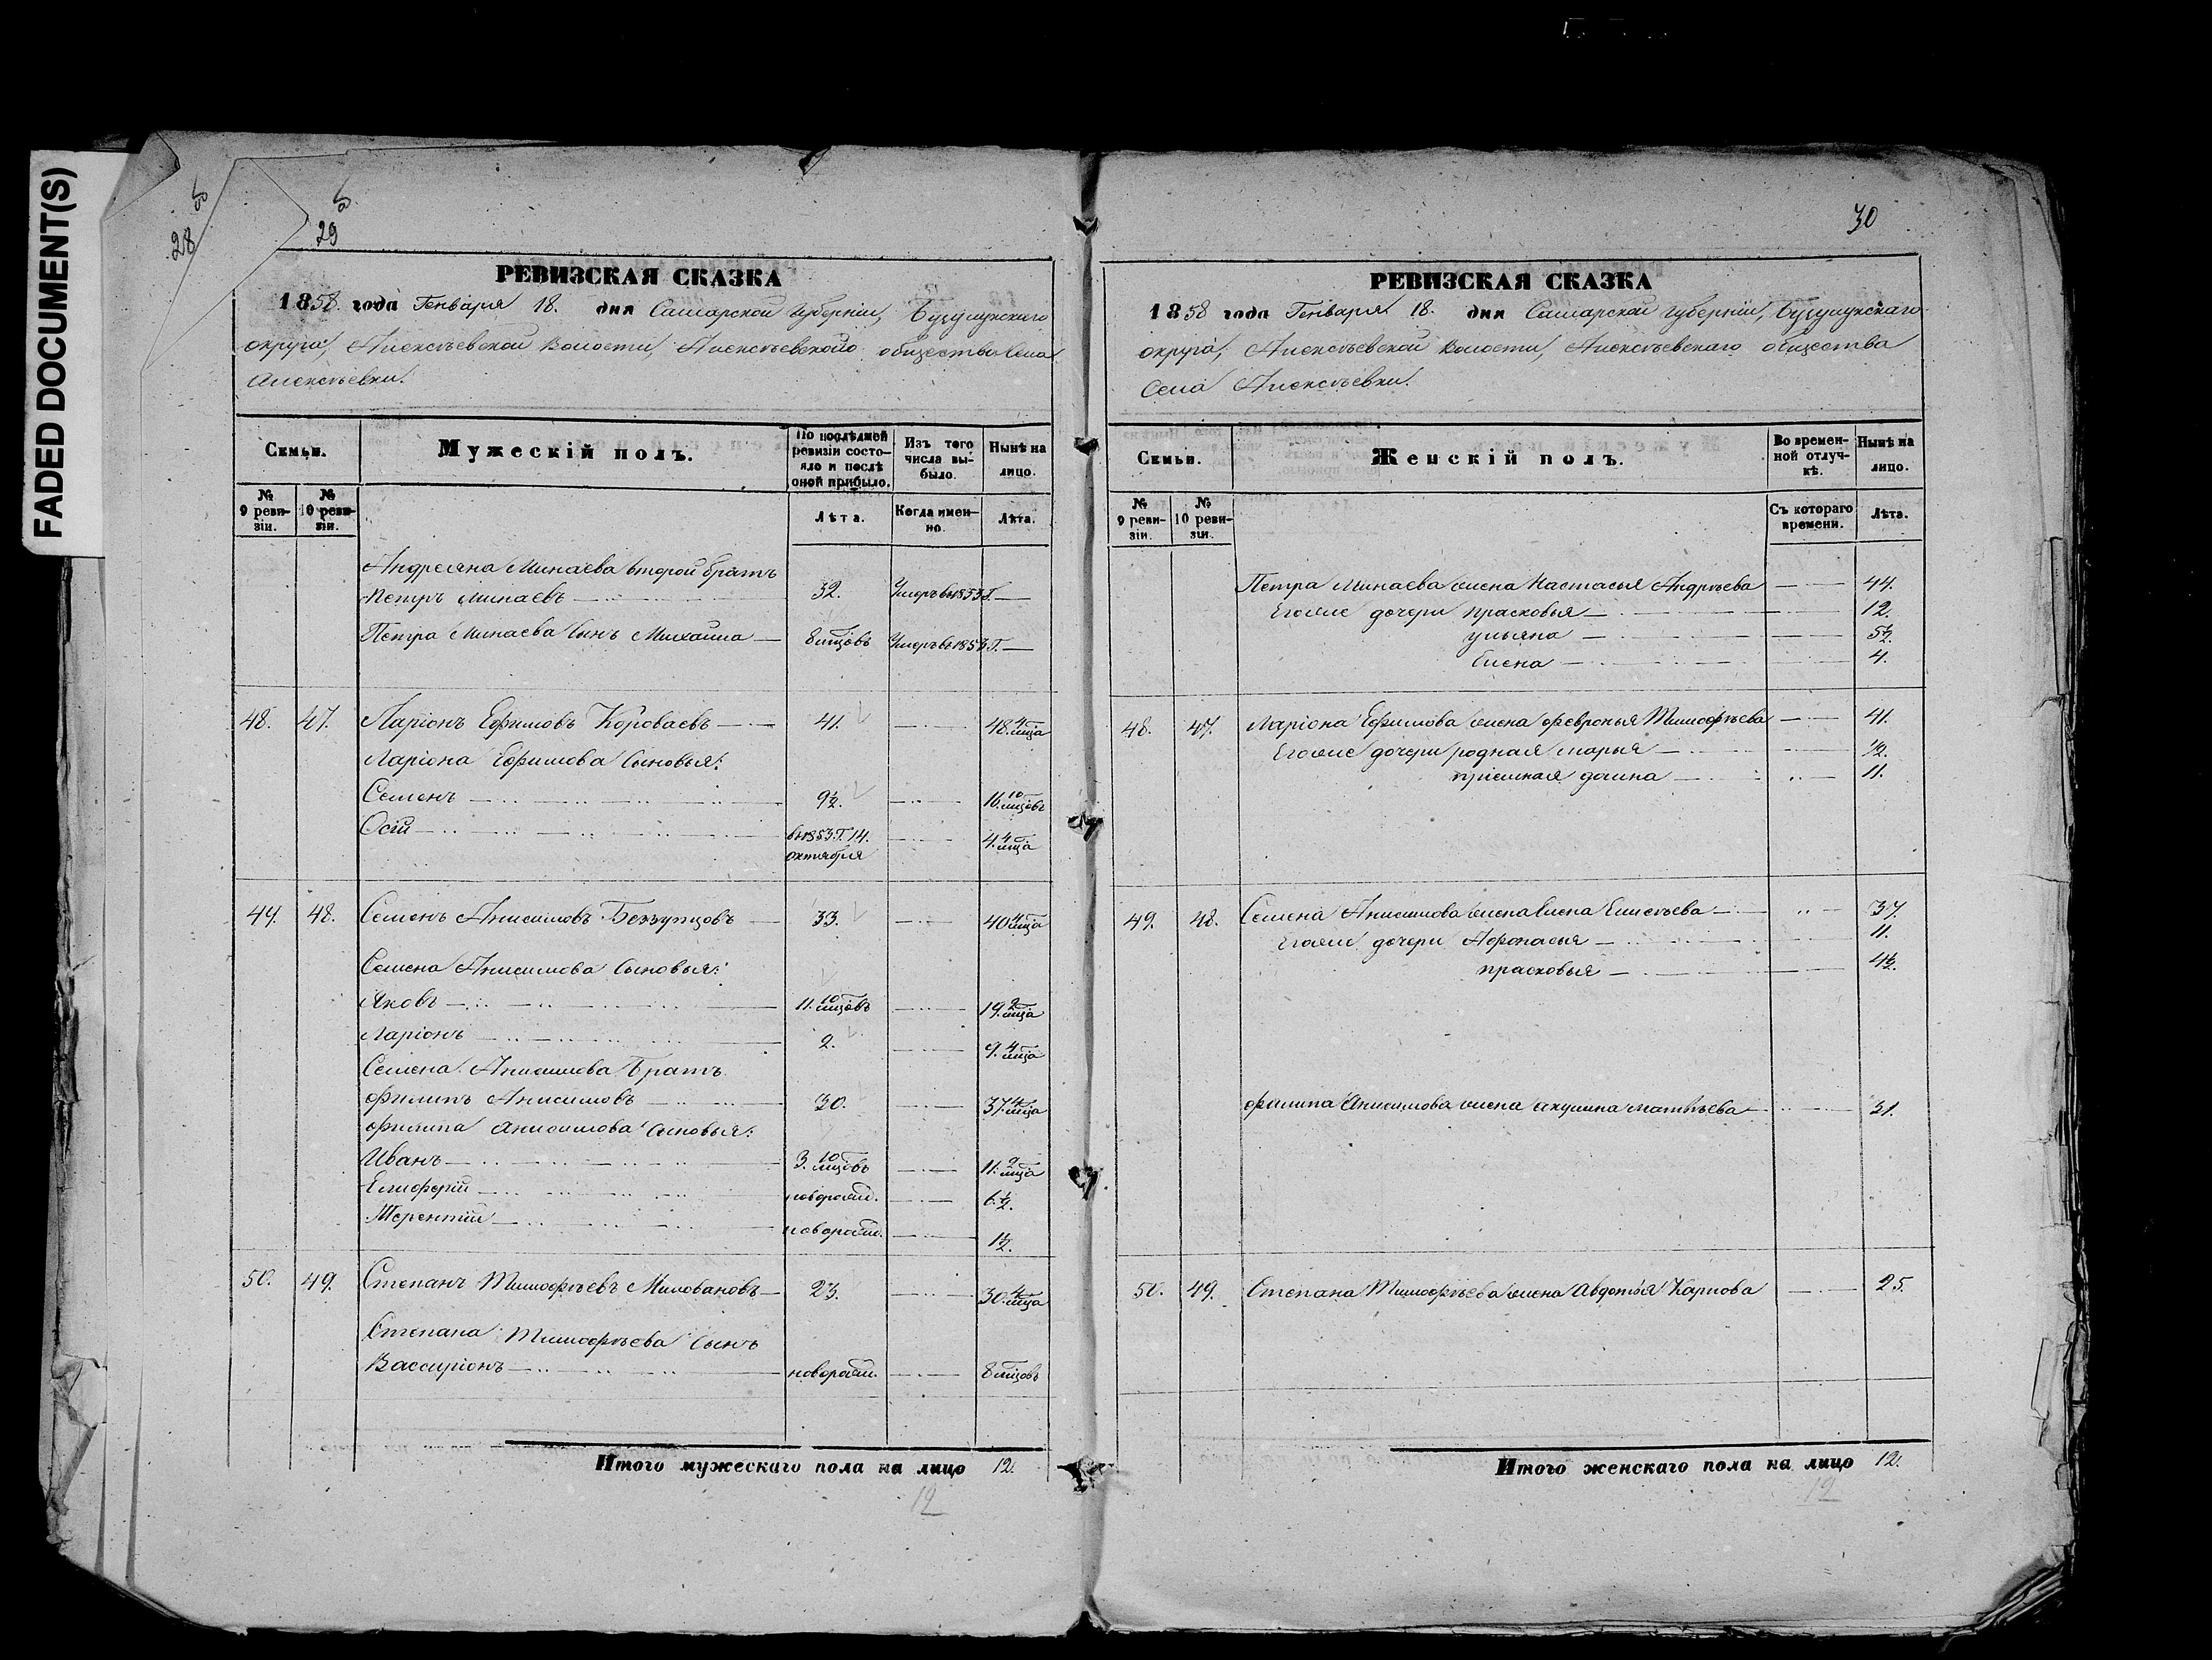 FADED DOCUMENT(S)
28
29
РЕВИЗСКАЯ СКАЗКА
1858 года Генваря 18. дня Самарской губерніи, Бузулукскаго
округа, Алексѣевской волости, Алексѣевскаго общества Села
Алексѣевки.
Семьи. Мужескій полъ. По послѣдней ревизіи состояло и послѣ оной прибыло. Изъ того числа выбыло. Нынѣ на лицо.
№ 9 ревизіи. № 10 ревизіи. Лѣта. Когда именно. Лѣта.
Андреяна Минаева второй братъ
Петръ Минаевъ 32. Умеръ въ 1853 г.
Петра Минаева сынъ Михаила 8 мцовъ Умеръ въ
48. 47. Ларіонъ Ефимовъ Короваевъ 41. 48. 4 мца
Ларіона Ефимова сыновья:
Семенъ 9½. 16. 10 мцовъ
Осій въ 1853 г. 14. октября 4. 4 мца
49. 48. Семенъ Анисимовъ Беззупцовъ 33. 40 4 мца
Семена Анисимова сыновья:
Яковъ 11. 10 мцовъ 19. 2 мца
Ларіонъ 2. 9. 4 мца
Семена Анисимова братъ
Филипъ Анисимовъ 30. 37. 4 мца
Филипа Анисимова сыновья:
Иванъ 3. 10 мцовъ 11. 2 мца
Елиферій новорожд. 6½.
Терентій новорожд. 1½.
50. 49. Степанъ Тимофѣевъ Миловановъ 23. 30. 4 мца
Степана Тимофѣева сынъ
Вассиріонъ новорожд. 8 мцовъ
Итого мужескаго пола на лицо 12.
12
30
РЕВИЗСКАЯ СКАЗКА
1858 года Генваря 18. дня Самарской губерніи, Бузулукскаго
округа, Алексѣевской волости, Алексѣевскаго общества
Села Алексѣевки.
Семьи. Женскій полъ. Во временной отлучкѣ. Нынѣ на лицо.
№ 9 ревизіи. № 10 ревизіи. Съ котораго времени. Лѣта.
Петра Минаева жена Настасья Андрѣева 44.
Егоже дочери Прасковья 12.
Ульяна 5½.
Елена 4.
48. 47. Ларіона Ефимова жена Февронья Тимофѣева 41.
Егоже дочери родная Марья ½.
пріемная Домна 11.
49. 48. Семена Анисимова жена Елена Елисѣева 37.
Егоже дочери Афонасья 11.
Прасковья 4½.
Филипа Анисимова жена Акулина Матвѣева 31.
50. 49. Степана Тимофѣева жена Авдотья Карпова 25.
Итого женскаго пола на лицо 12.
12